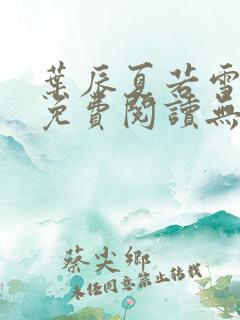 葉辰夏若雪
免費閱讀無
蔡尖鄉
未經同意禁止轉載